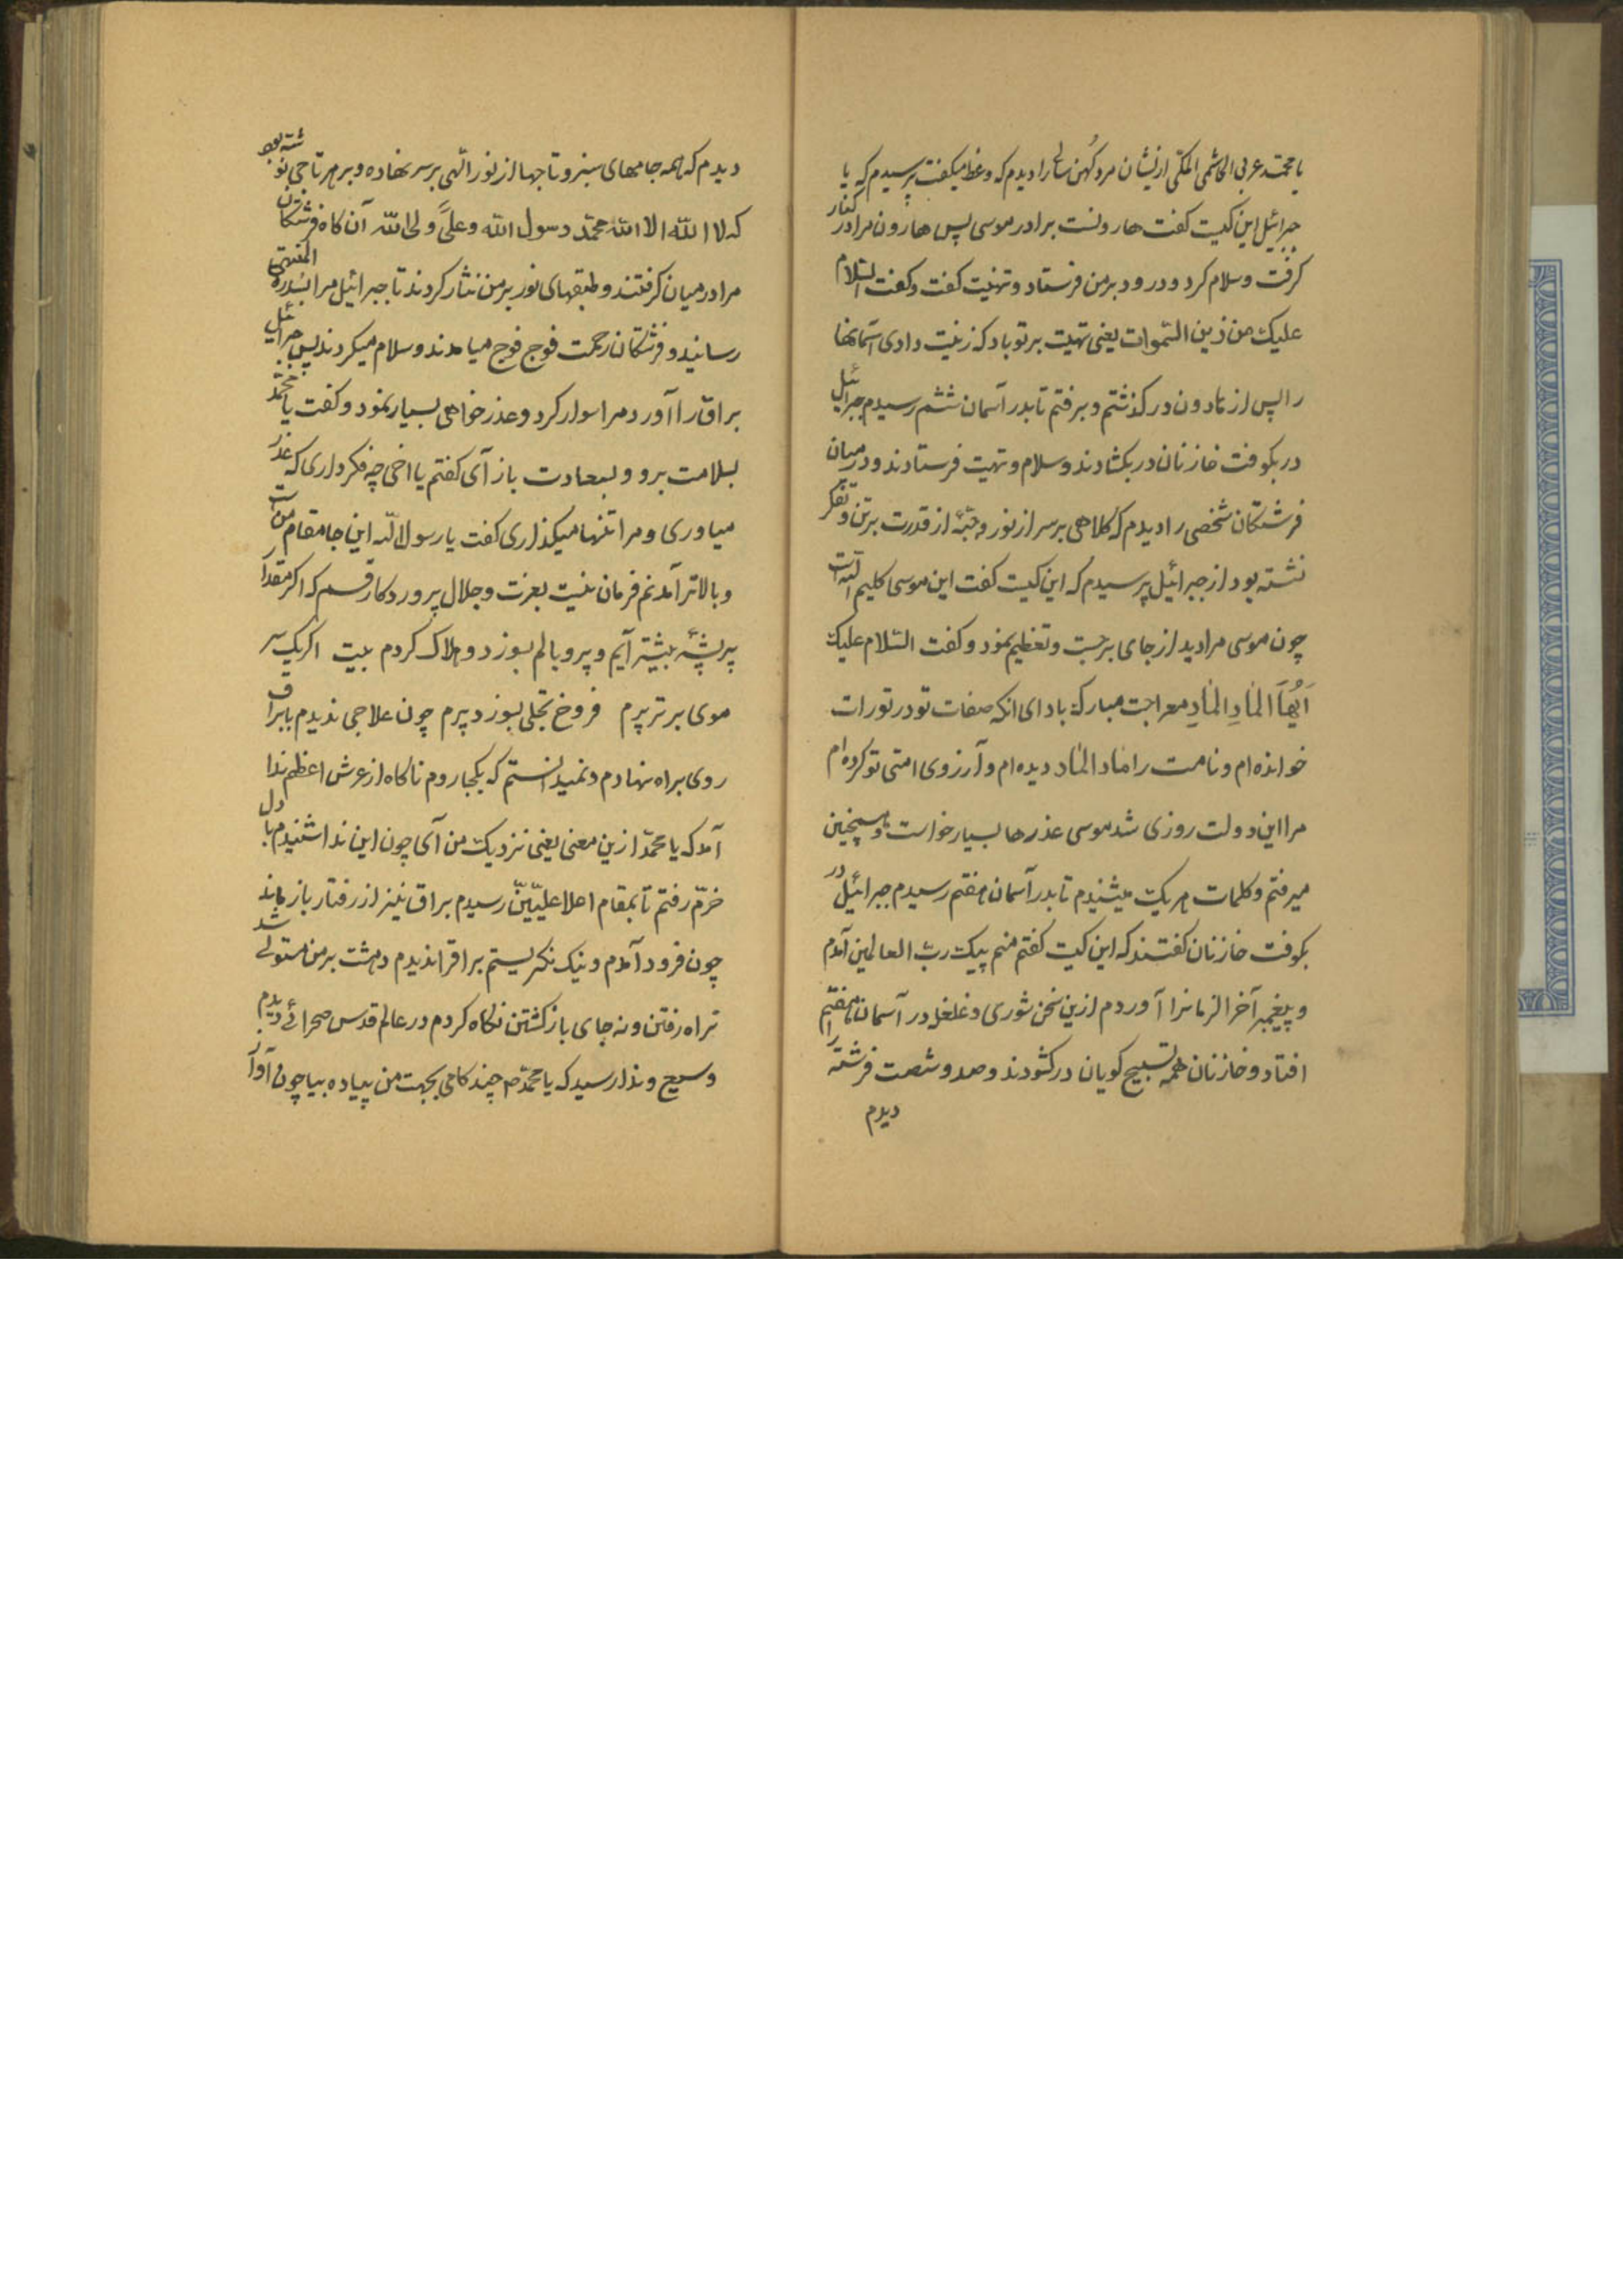 یا محمّد عربی الهاشمی المکّی ازیشان مرد کُهن سالی را دیدم که وعظ میکفت پرسیدم که یا
جبرائیل این کیست کفت هارونست برادر موسی پس هارون مرا در کنار
کرفت وسلام کرد و درود بر من فرستاد و تهنیت کفت وکفت السّلام
علیک من زین السّموات یعنی تهیّت بر تو باد که زینت دادی آسمانها
را پس از هارون در کذشتم و برفتم تا بدر آسمان ششم رسیدم جبرائیل
در بکوفت خازنان در بکشادند وسلام وتهیت فرستادند و در میان
فرشتکان شخصی را دیدم که کلاهی بر سر از نور وجبّهٔ از قدرت بر تن و تفکر
نشسته بود از جبرائیل پرسیدم که این کیست کفت این موسی کلیم اللّه است
چون موسی مرا دید از جای برجست وتعظیم نمود و کفت السّلام علیک
اَیُّهَا المَادِ المَادِ معراجت مبارک باد ای انکه صفات تو در تورات
خوانده‌ام و نامت را ماد الماد دیده‌ام و آرزوی امتی تو کرده‌ام
مرا این دولت روزی شد موسی عذرها بسیار خواست و همچنین
میرفتم وکلمات هر یک میشنیدم تا بدر آسمان هفتم رسیدم جبرائیل در
بکوفت خازنان کفتند که این کیست کفتم منم پیک ربّ العالمین آمدم
و پیغمبر آخر الزمانرا آوردم ازین سخن شوری و غلغل در آسمان هفتم
افتاد و خازنان همه تسبیح کویان در کشودند و صد و شصت فرشته را
دیدم
دیدم که همه جامهای سبز و تاجها از نور الهی بر سر نهاده و بر هر تاجی نوشته بود
که لا اله الا الله محمّد رسول الله وعلیّ ولی الله آن کاه فرشتکان
مرا در میان کرفتند و طبقهای نور بر من نثار کردند تا جبرائیل مرا بسدرة المنتهی
رسانید و فرشتکان رحمت فوج فوج میامدند و سلام میکردند پس جبرائیل
براق را آورد مرا سوار کرد و عذر خواهی بسیار نمود و کفت یا محمّد
بسلامت برو و بسعادت باز آی کفتم یا اخی چه فکر داری که عذر
میاوری و مرا تنها میکذاری کفت یا رسول اللّه این جا مقام من است
و بالاتر آمدنم فرمان نیست بعزت و جلال پروردکار قسم که اکر مقدار
پر پشّهٔ بیشتر آیم و پر و بالم بسوزد و هلاک کردم بیت اکر یک سر
موی برتر پرم فروغ تجلی بسوزد پرم چون علاجی ندیدم با براق
روی براه نهادم و نمیدانستم که بکجا روم ناکاه از عرش اعظم ندا
آمد که یا محمّد ازین معنی یعنی نزدیک من آی چون این ندا شنیدم با دل
خرّم رفتم تا بمقام اعلا علیّیّن رسیدم براق نیز از رفتار باز ماند
چون فرود آمدم و نیک نکریستم براقرا ندیدم دهشت بر من مستولی شد
نه راه رفتن و نه جای باز کشتن نکاه کردم در عالم قدس صحرائی دیدم
وسیع و ندا رسید که یا محمّد ص چند کامی بجهت من پیاده بیا چون آواز